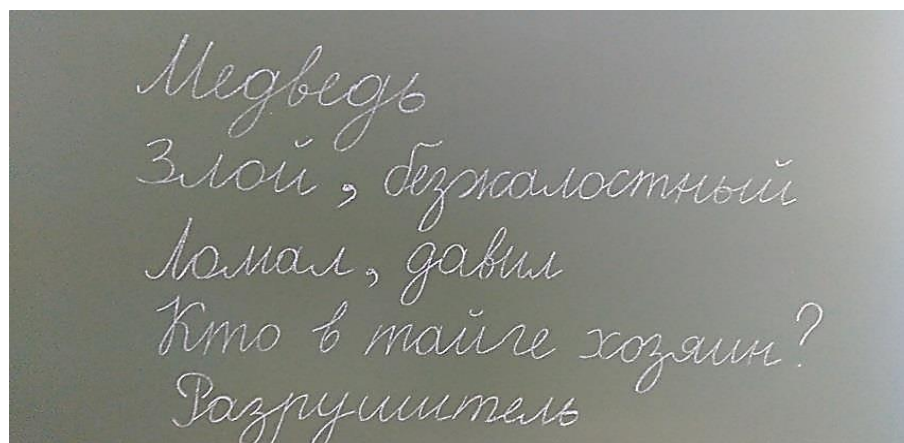 Медведь
Злой, безжалостный
Ломал, давил
Кто в тайге хозяин?
Разрушитель